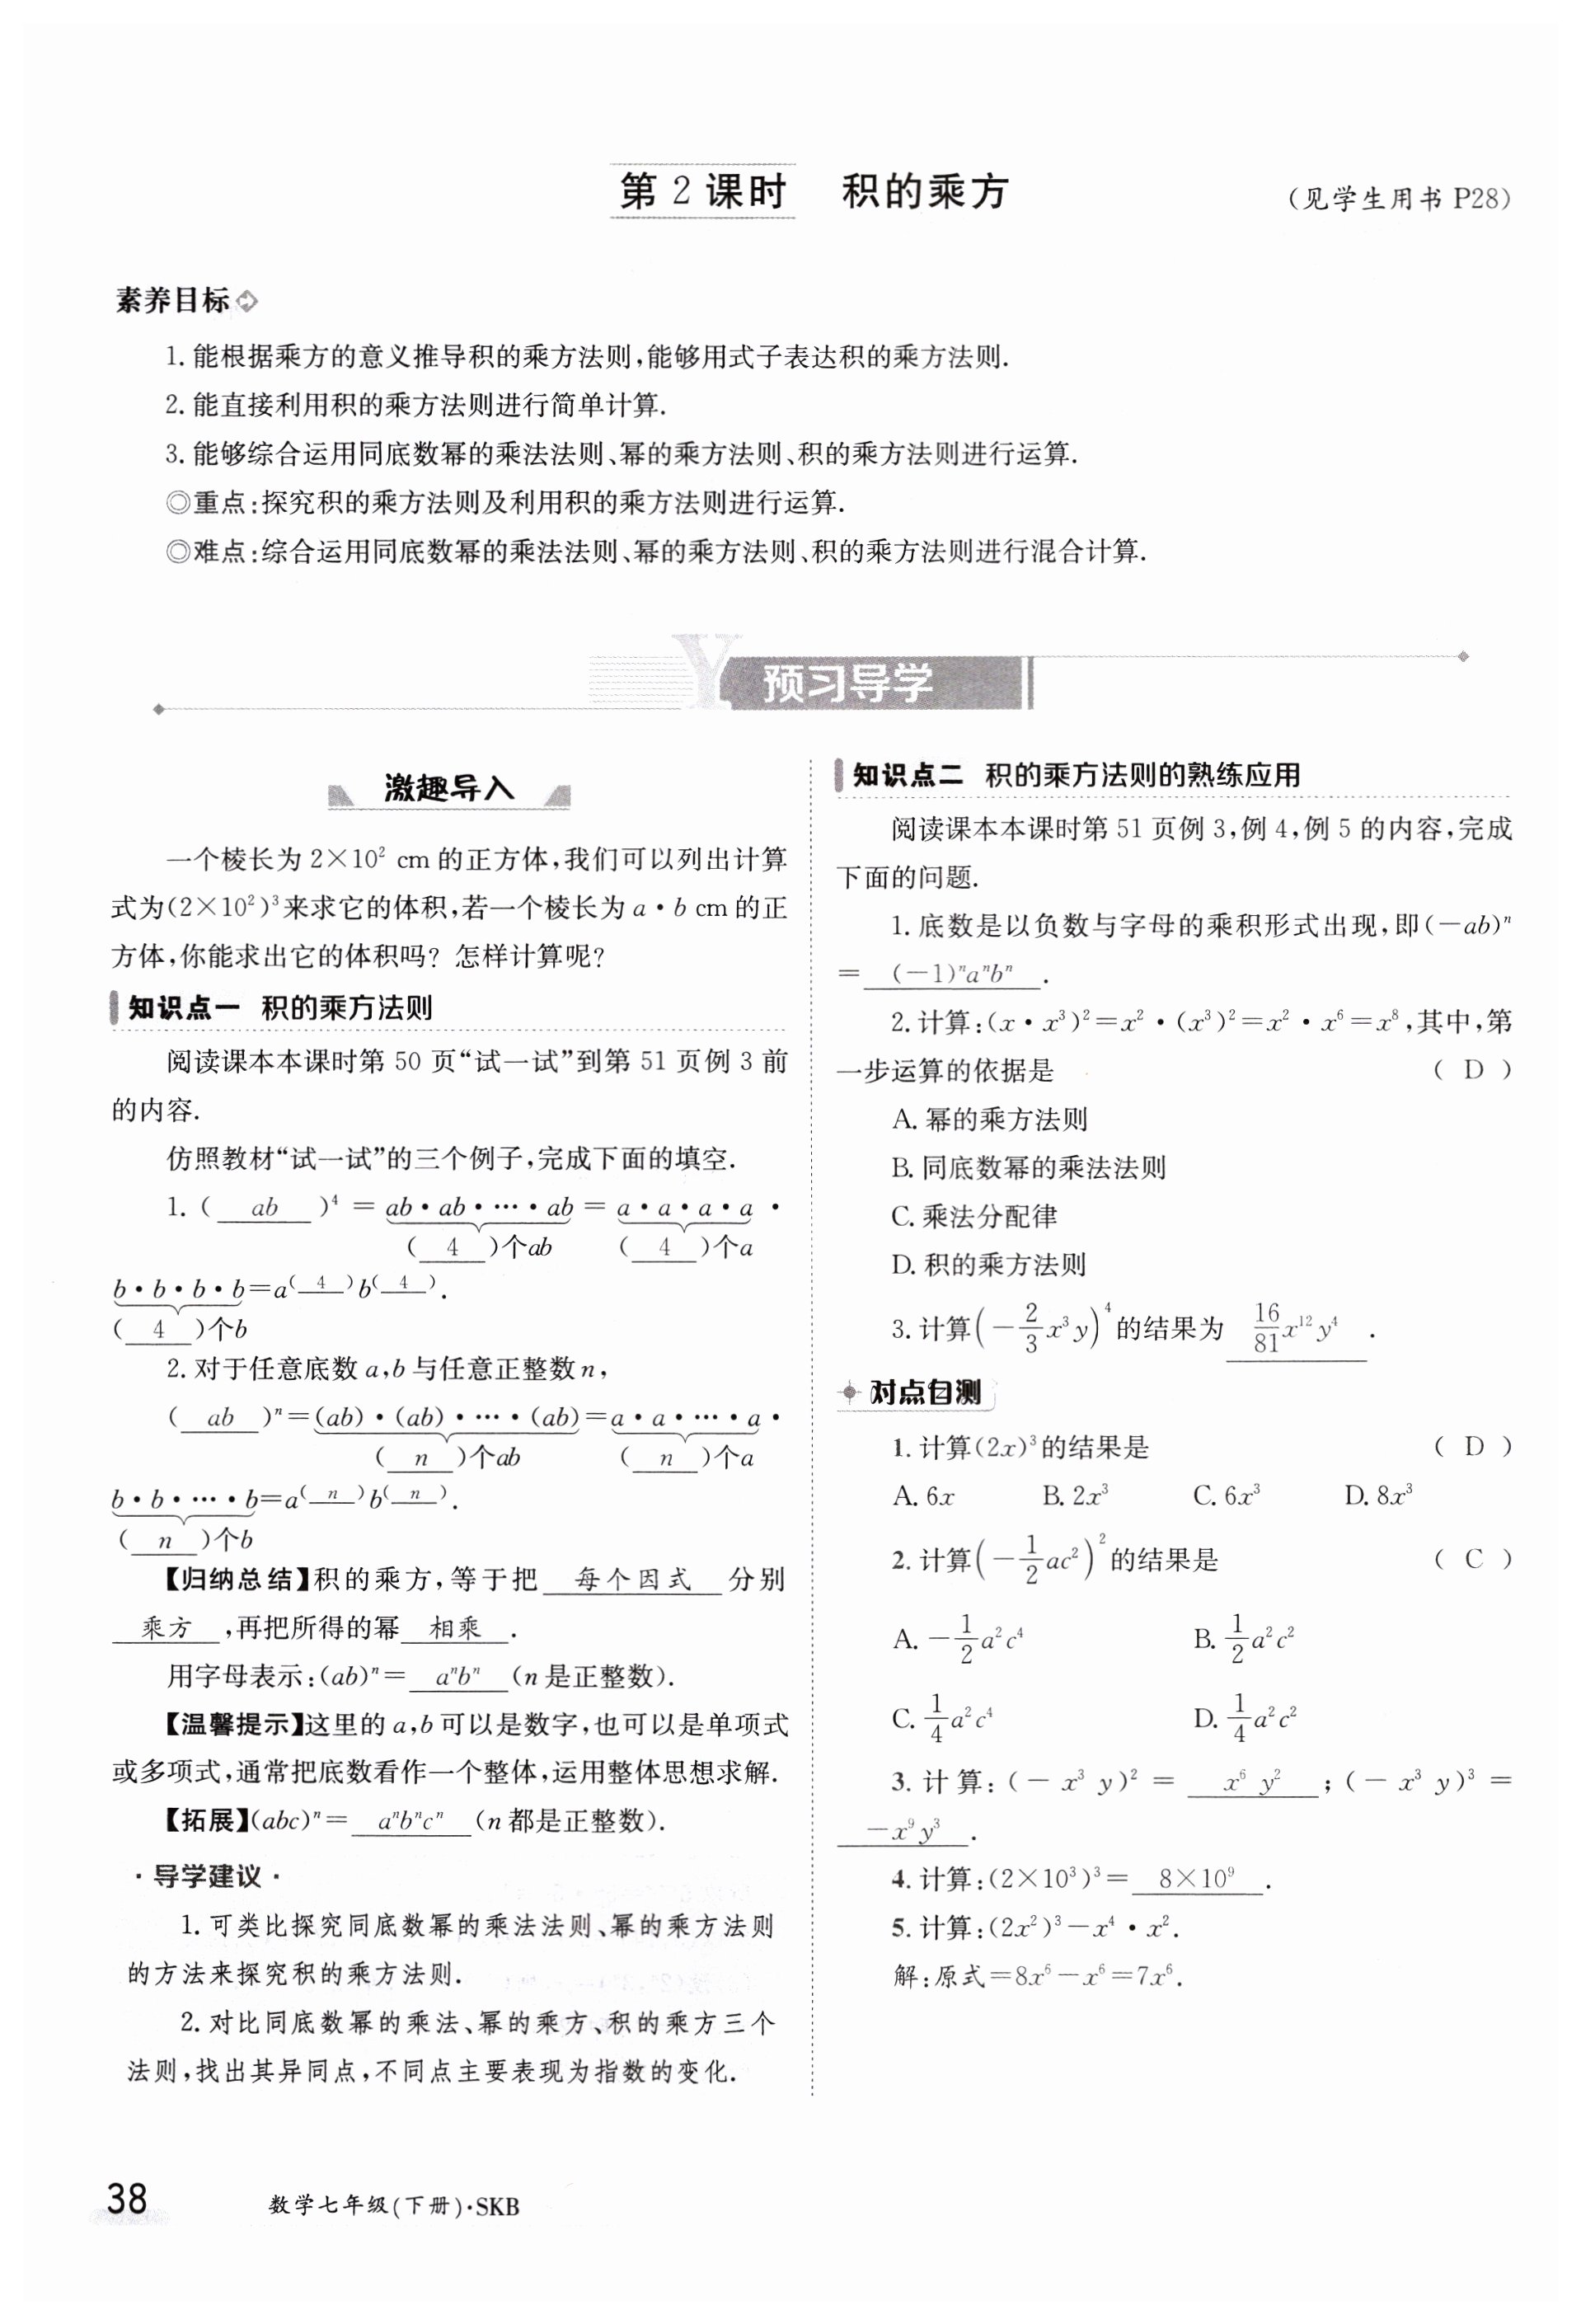 第 2 课时 积的乘方 (见学生用书 P28)
素养目标
1. 能根据乘方的意义推导积的乘方法则,能够用式子表达积的乘方法则.
2. 能直接利用积的乘方法则进行简单计算.
3. 能够综合运用同底数幂的乘法法则、幂的乘方法则、积的乘方法则进行运算.
◎重点:探究积的乘方法则及利用积的乘方法则进行运算.
◎难点:综合运用同底数幂的乘法法则、幂的乘方法则、积的乘方法则进行混合计算.
Y 预习导学
激趣导入
一个棱长为 2×10² cm 的正方体,我们可以列出计算
式为(2×10²)³来求它的体积,若一个棱长为 a·b cm 的正
方体,你能求出它的体积吗? 怎样计算呢?
知识点一 积的乘方法则
阅读课本本课时第 50 页“试一试”到第 51 页例 3 前
的内容.
仿照教材“试一试”的三个例子,完成下面的填空.
1. ( ab )⁴ = ab·ab·…·ab = a·a·a·a ·
( 4 )个ab ( 4 )个a
b·b·b·b=a^( 4 )b^( 4 ).
( 4 )个b
2. 对于任意底数 a,b 与任意正整数 n,
( ab )ⁿ=(ab)·(ab)·…·(ab)=a·a·…·a·
( n )个ab ( n )个a
b·b·…·b=a^( n )b^( n ).
( n )个b
【归纳总结】积的乘方,等于把 每个因式 分别
乘方 ,再把所得的幂 相乘 .
用字母表示:(ab)ⁿ= aⁿbⁿ (n 是正整数).
【温馨提示】这里的 a,b 可以是数字,也可以是单项式
或多项式,通常把底数看作一个整体,运用整体思想求解.
【拓展】(abc)ⁿ= aⁿbⁿcⁿ (n 都是正整数).
·导学建议·
1. 可类比探究同底数幂的乘法法则、幂的乘方法则
的方法来探究积的乘方法则.
2. 对比同底数幂的乘法、幂的乘方、积的乘方三个
法则,找出其异同点,不同点主要表现为指数的变化.
知识点二 积的乘方法则的熟练应用
阅读课本本课时第 51 页例 3,例 4,例 5 的内容,完成
下面的问题.
1. 底数是以负数与字母的乘积形式出现,即(-ab)ⁿ
= (-1)ⁿaⁿbⁿ .
2. 计算:(x·x³)²=x²·(x³)²=x²·x⁶=x⁸,其中,第
一步运算的依据是 ( D )
A. 幂的乘方法则
B. 同底数幂的乘法法则
C. 乘法分配律
D. 积的乘方法则
3. 计算(-2/3 x³y)⁴的结果为 16/81 x¹²y⁴ .
对点自测
1. 计算(2x)³的结果是 ( D )
A. 6x B. 2x³ C. 6x³ D. 8x³
2. 计算(-1/2 ac²)²的结果是 ( C )
A. -1/2 a²c⁴ B. 1/2 a²c²
C. 1/4 a²c⁴ D. 1/4 a²c²
3. 计算: (-x³ y)² = x⁶ y² ; (-x³ y)³ =
-x⁹y³ .
4. 计算:(2×10³)³= 8×10⁹ .
5. 计算:(2x²)³-x⁴·x².
解:原式=8x⁶-x⁶=7x⁶.
38 数学七年级(下册)·SKB